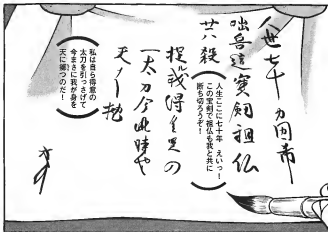 人世七十 力囲希
咄吾這寶剣祖仏
共殺
人生ここに七十年 えいっ!
この宝剣で祖仏も我と共に
断ち切ろうぞ!
提ル我得具足の
一太刀今此時そ
天ニ抛
私は自ら得意の
太刀を引っさげて
今まさに我が身を
天に擲つのだ!